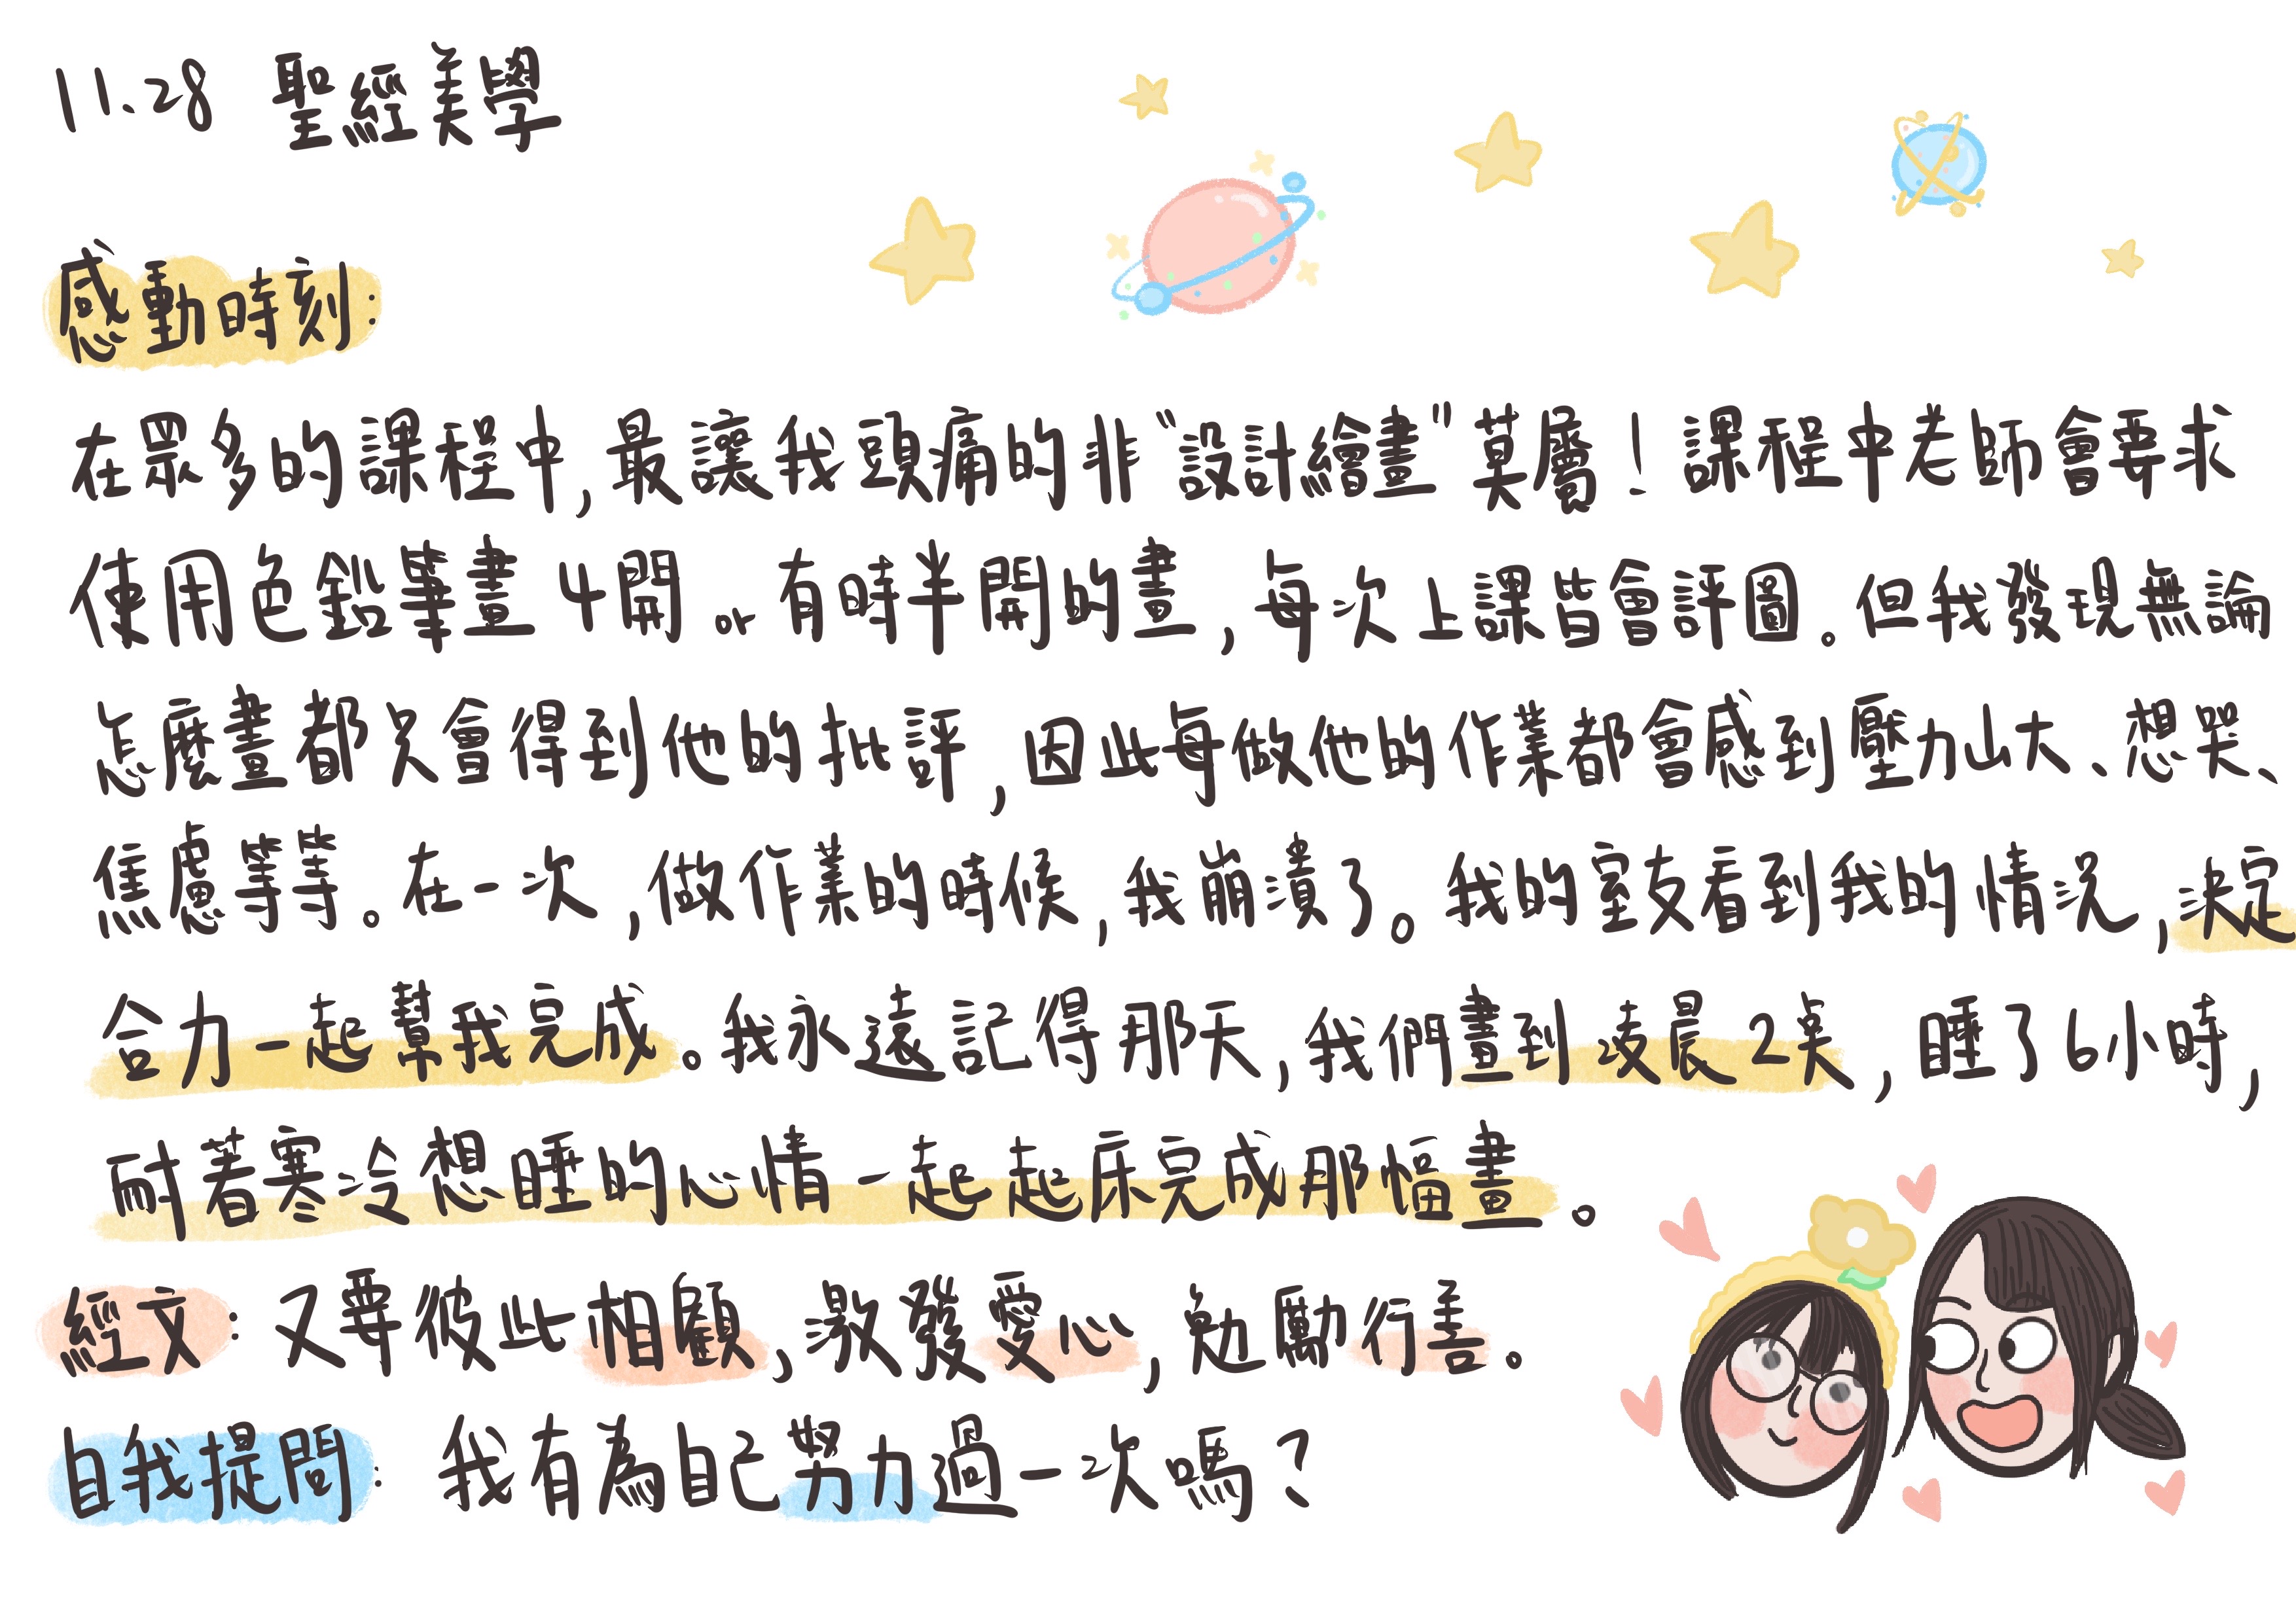 11.28 聖經美學
感動時刻:
在眾多的課程中,最讓我頭痛的非"設計繪畫"莫屬!課程中老師會要求
使用色鉛筆畫4開or有時半開的畫,每次上課皆會評圖。但我發現無論
怎麼畫都只會得到他的批評,因此每做他的作業都會感到壓力山大、想哭、
焦慮等等。在一次,做作業的時候,我崩潰了。我的室友看到我的情況,決定
合力一起幫我完成。我永遠記得那天,我們畫到凌晨2點,睡了6小時,
耐著寒冷想睡的心情一起起床完成那幅畫。
經文:又要彼此相顧,激發愛心,勉勵行善。
自我提問:我有為自己努力過一次嗎?